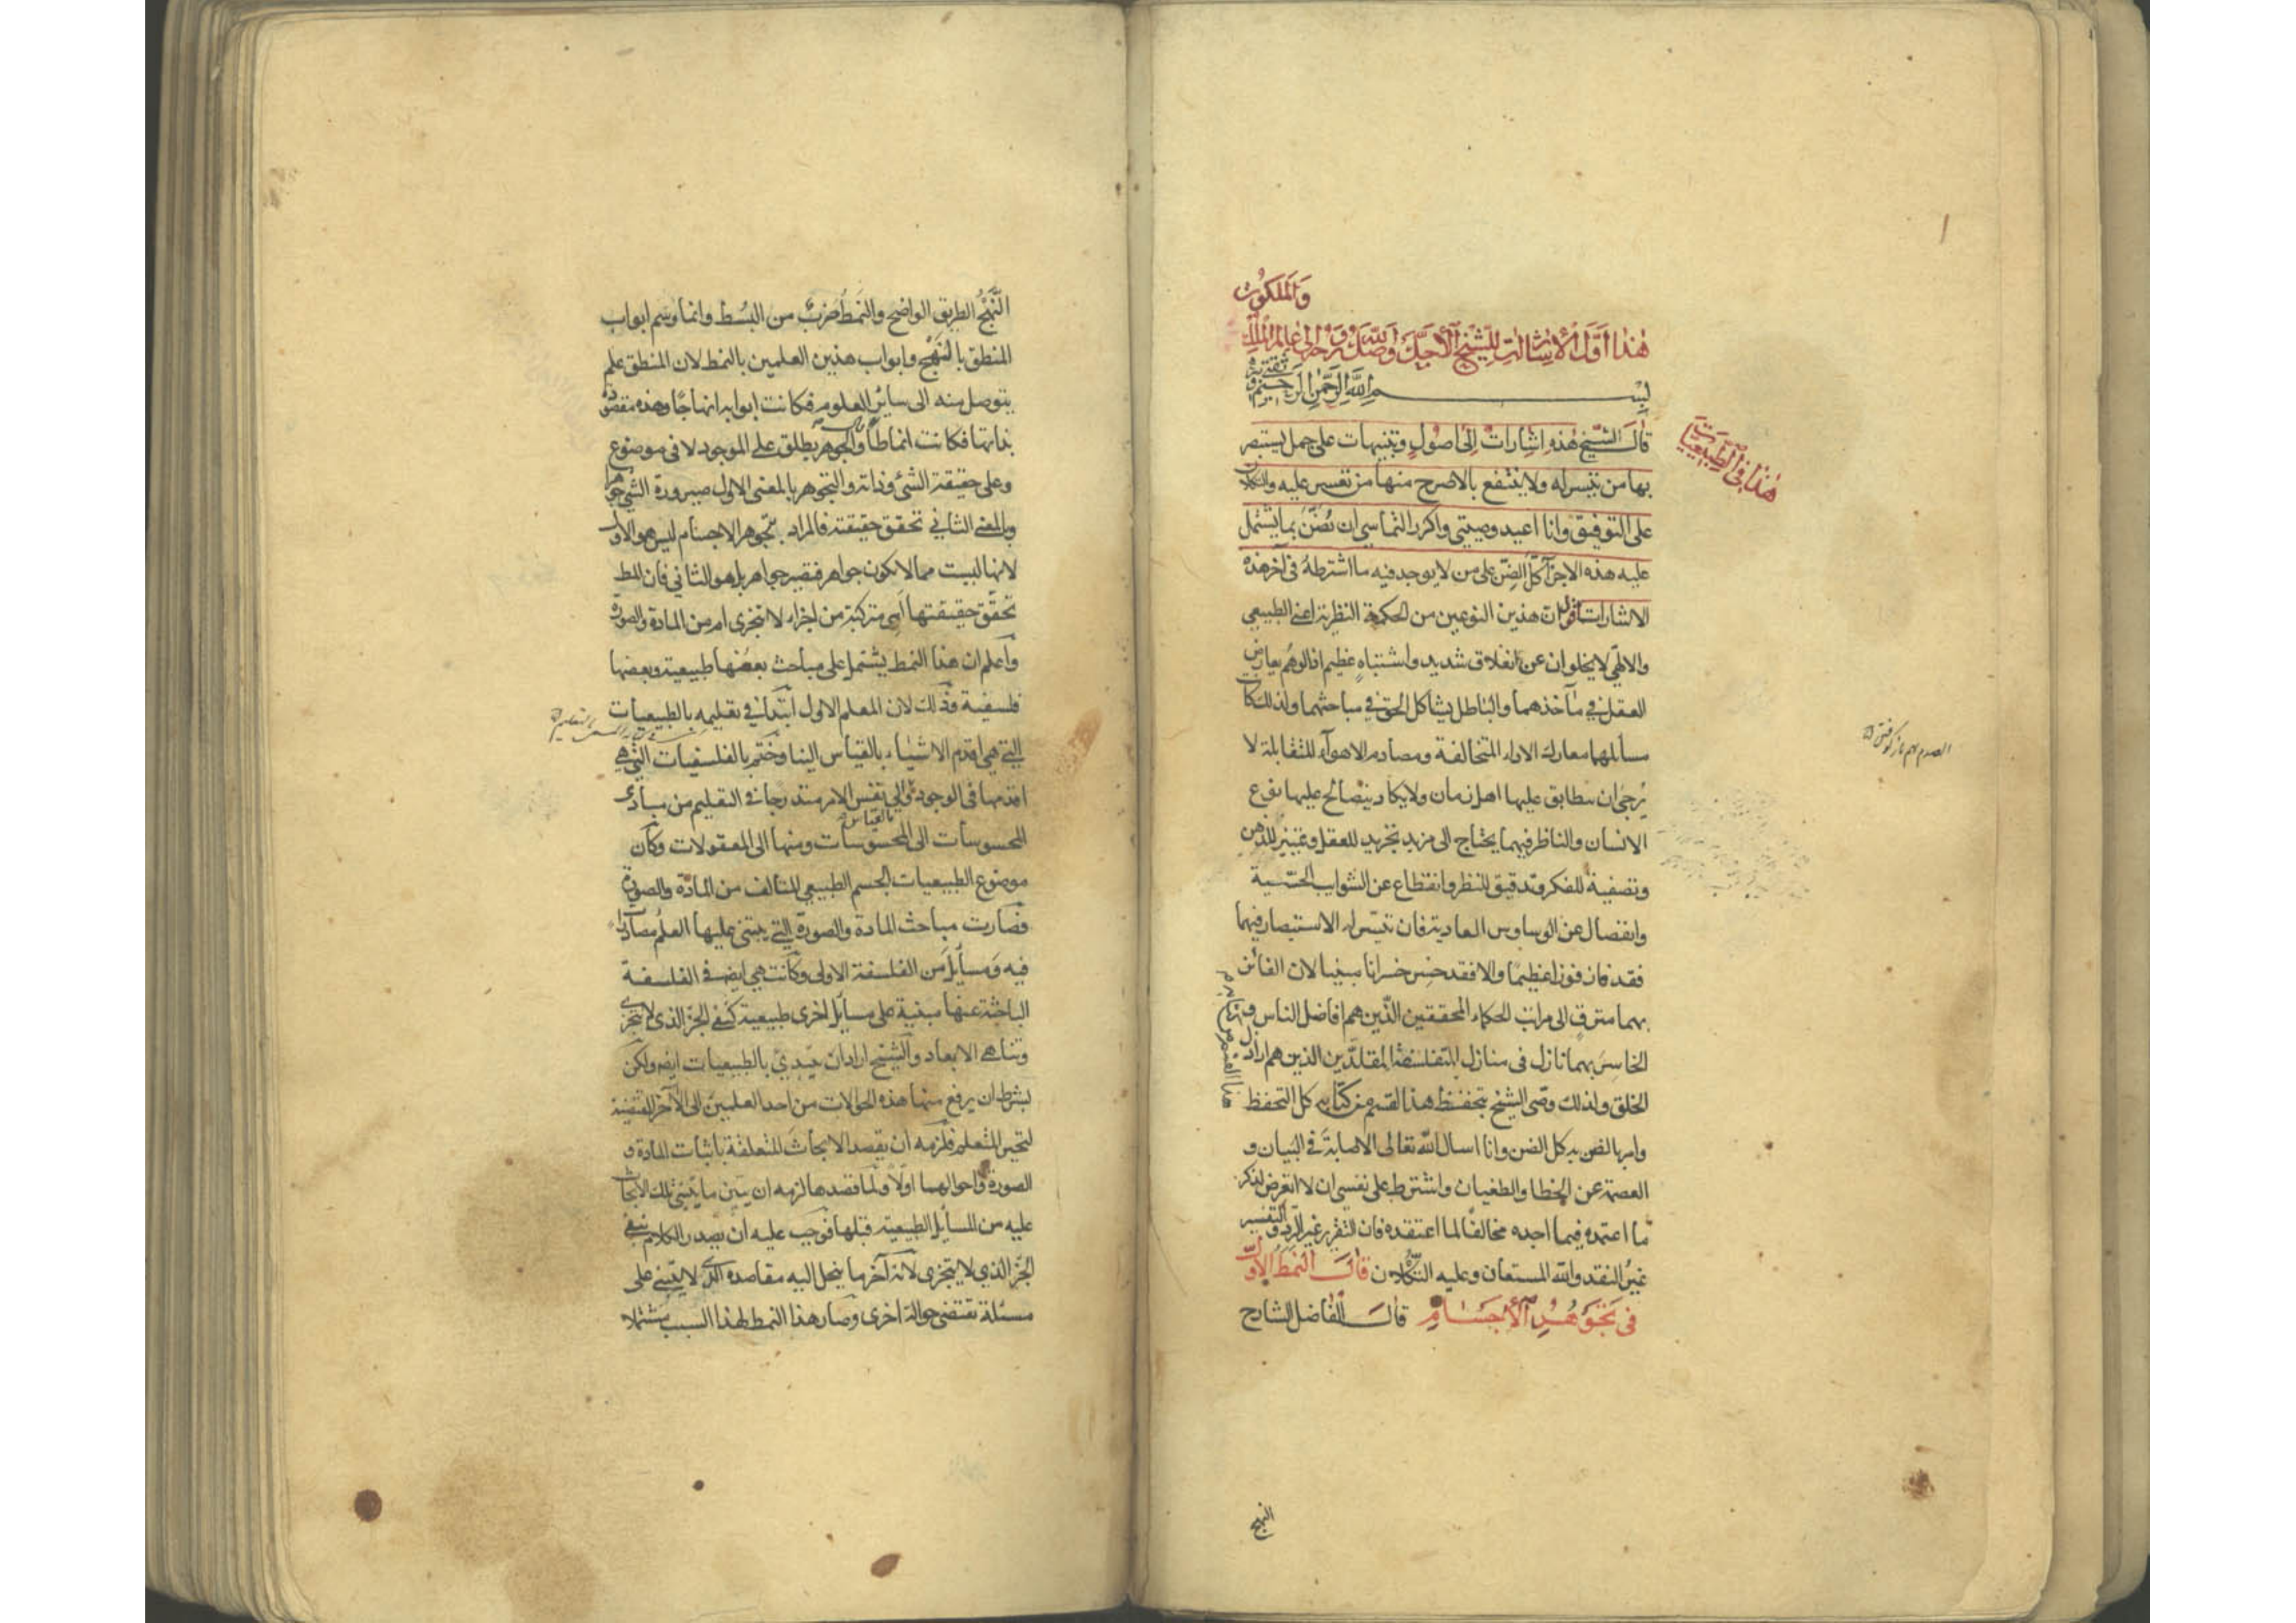 والملكوت
هذا اول الاشارات للشيخ الاجل اوصل الله روحه الى عالم الملك
بسم الله الرحمن الرحيم
هذا في الطبيعيات
قال الشيخ هذه اشارات الى اصول وتنبيهات على جمل يستبصر
بها من تيسر له ولا ينتفع بالاصرح منها من تعسر عليه والتكلان
على التوفيق وانا اعيد وصيتي واكرر التماسي ان يضن بما يشتمل
عليه هذه الاجزآء كل الضن على من لا يوجد فيه ما اشترطه في آخر هذه
الاشارات اقول ان هذين النوعين من الحكمة النظرية اعني الطبيعي
والالهي لا يخلوان عن انغلاق شديد واشتباه عظيم اذ الوهم يعارض
العقل في مآخذهما والباطل يشاكل الحق في مباحثهما ولذلك كان
مسائلهما معارك الاراء المتخالفة ومصادم الاهوآء المتقابلة لا
يرجى ان يتطابق عليها اهل زمان ولا يكاد يتصالح عليها نوع
الانسان والناظر فيهما يحتاج الى مزيد تجريد للعقل وتمييز للذهن
وتصفية للفكر وتدقيق للنظر وانقطاع عن الشوايب الحسية
وانفصال عن الوساوس العادية فان تيسر له الاستبصار فيهما
فقد فاز فوزا عظيما والا فقد خسر خسرانا مبينا لان الفائز
بهما مترق الى مراتب الحكماء المحققين الذين هم افاضل الناس و
الخاسر بهما نازل في منازل المتفلسفة المقلدين الذين هم اراذل
الخلق ولذلك وصى الشيخ بتحفظ هذا القسم من كتابه كل التحفظ
وامر بالضن به كل الضن وانا اسال الله تعالى الاصابة في البيان و
العصمة عن الخطا والطغيان واشترط على نفسي ان لا اتعرض لذكر
ما اعتمده فيما اجده مخالفا لما اعتقده فان التقرير غير الرد والتفسير
غير النقد والله المستعان وعليه التكلان قال النمط الاول
في تجوهر الاجسام قال الفاضل الشارح
النهج
النهج الطريق الواضح والنمط ضرب من البسط وانما وسم ابواب
المنطق بالنهج وابواب هذين العلمين بالنمط لان المنطق علم
يتوصل منه الى سائر العلوم فكانت ابوابه انهاجا وهذه مقصودة
بذاتها فكانت انماطا والجوهر يطلق على الموجود لا في موضوع
وعلى حقيقة الشئ وذاته والتجوهر بالمعنى الاول صيرورة الشئ جوهرا
وبالمعنى الثاني تحقق حقيقته فالمراد بتجوهر الاجسام ليس هو الاول
لانها ليست مما لا يكون جواهر فتصير جواهر بل هو الثاني فان المط
تحقق حقيقتها اهي متركبة من اجزاء لا تتجزى ام من المادة والصورة
واعلم ان هذا النمط يشتمل على مباحث بعضها طبيعية وبعضها
فلسفية وذلك لان المعلم الاول ابتدأ في تعليمه بالطبيعيات
التي هي اقدم الاشياء بالقياس الينا وختم بالفلسفيات التي هي
اقدمها في الوجود والى نفس الامر متدرجا في التعليم من مبادى
بالقياس
المحسوسات الى المحسوسات ومنها الى المعقولات وكان
موضوع الطبيعيات الجسم الطبيعي المتالف من المادة والصورة
فصارت مباحث المادة والصورة التي يبتنى عليها العلم مصادرات
فيه ومسائل من الفلسفة الاولى وكانت هي ايضه في الفلسفة
الباحثة عنها مبنية على مسائل اخرى طبيعية كنفي الجزء الذي لا يتجزى
وتناهي الابعاد والشيخ اراد ان يبتدئ بالطبيعيات ايضه ولكن
بشرط ان يرفع منها هذه الحوالات من احد العلمين الى الآخر المقتضية
لتحير المتعلم فلزمه ان يقصد الابحاث المتعلقة باثبات المادة و
الصورة واحوالهما اولا ولما قصدها لزمه ان يبين ما يبتنى تلك الابحاث
عليه من المسائل الطبيعية قبلها فوجب عليه ان يصدر الكلام بنفي
الجزء الذي لا يتجزى لانه آخر ما ينحل اليه مقاصده الذي لا يبتنى على
مسئلة تقتضى حوالة اخرى وصار هذا النمط لهذا السبب مشتملا